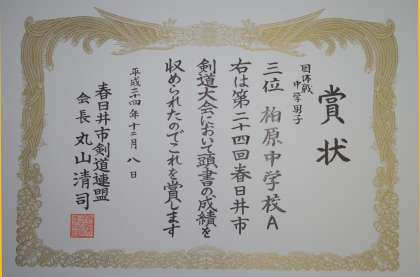 賞状
団体戦
中学男子
三位 柏原中学校A
右は第二十四回春日井市
剣道大会において頭書の成績を
収められたのでこれを賞します
平成二十四年十二月八日
春日井市剣道連盟
会長 丸山清司